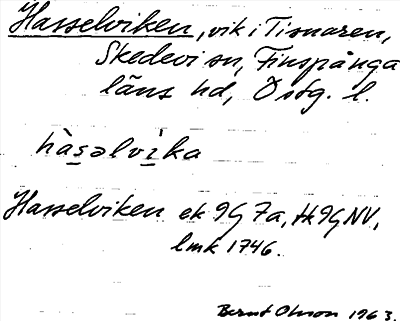 Hasselviken, vik i Tisnaren,
Skedevi sn, Finspånga
läns hd, Östg. l.
hàs̱əlvi̱ka
Hasselviken ek 9G 7a, Hk 9G NV,
lmk 1746.
Bernt Olsson 1963.